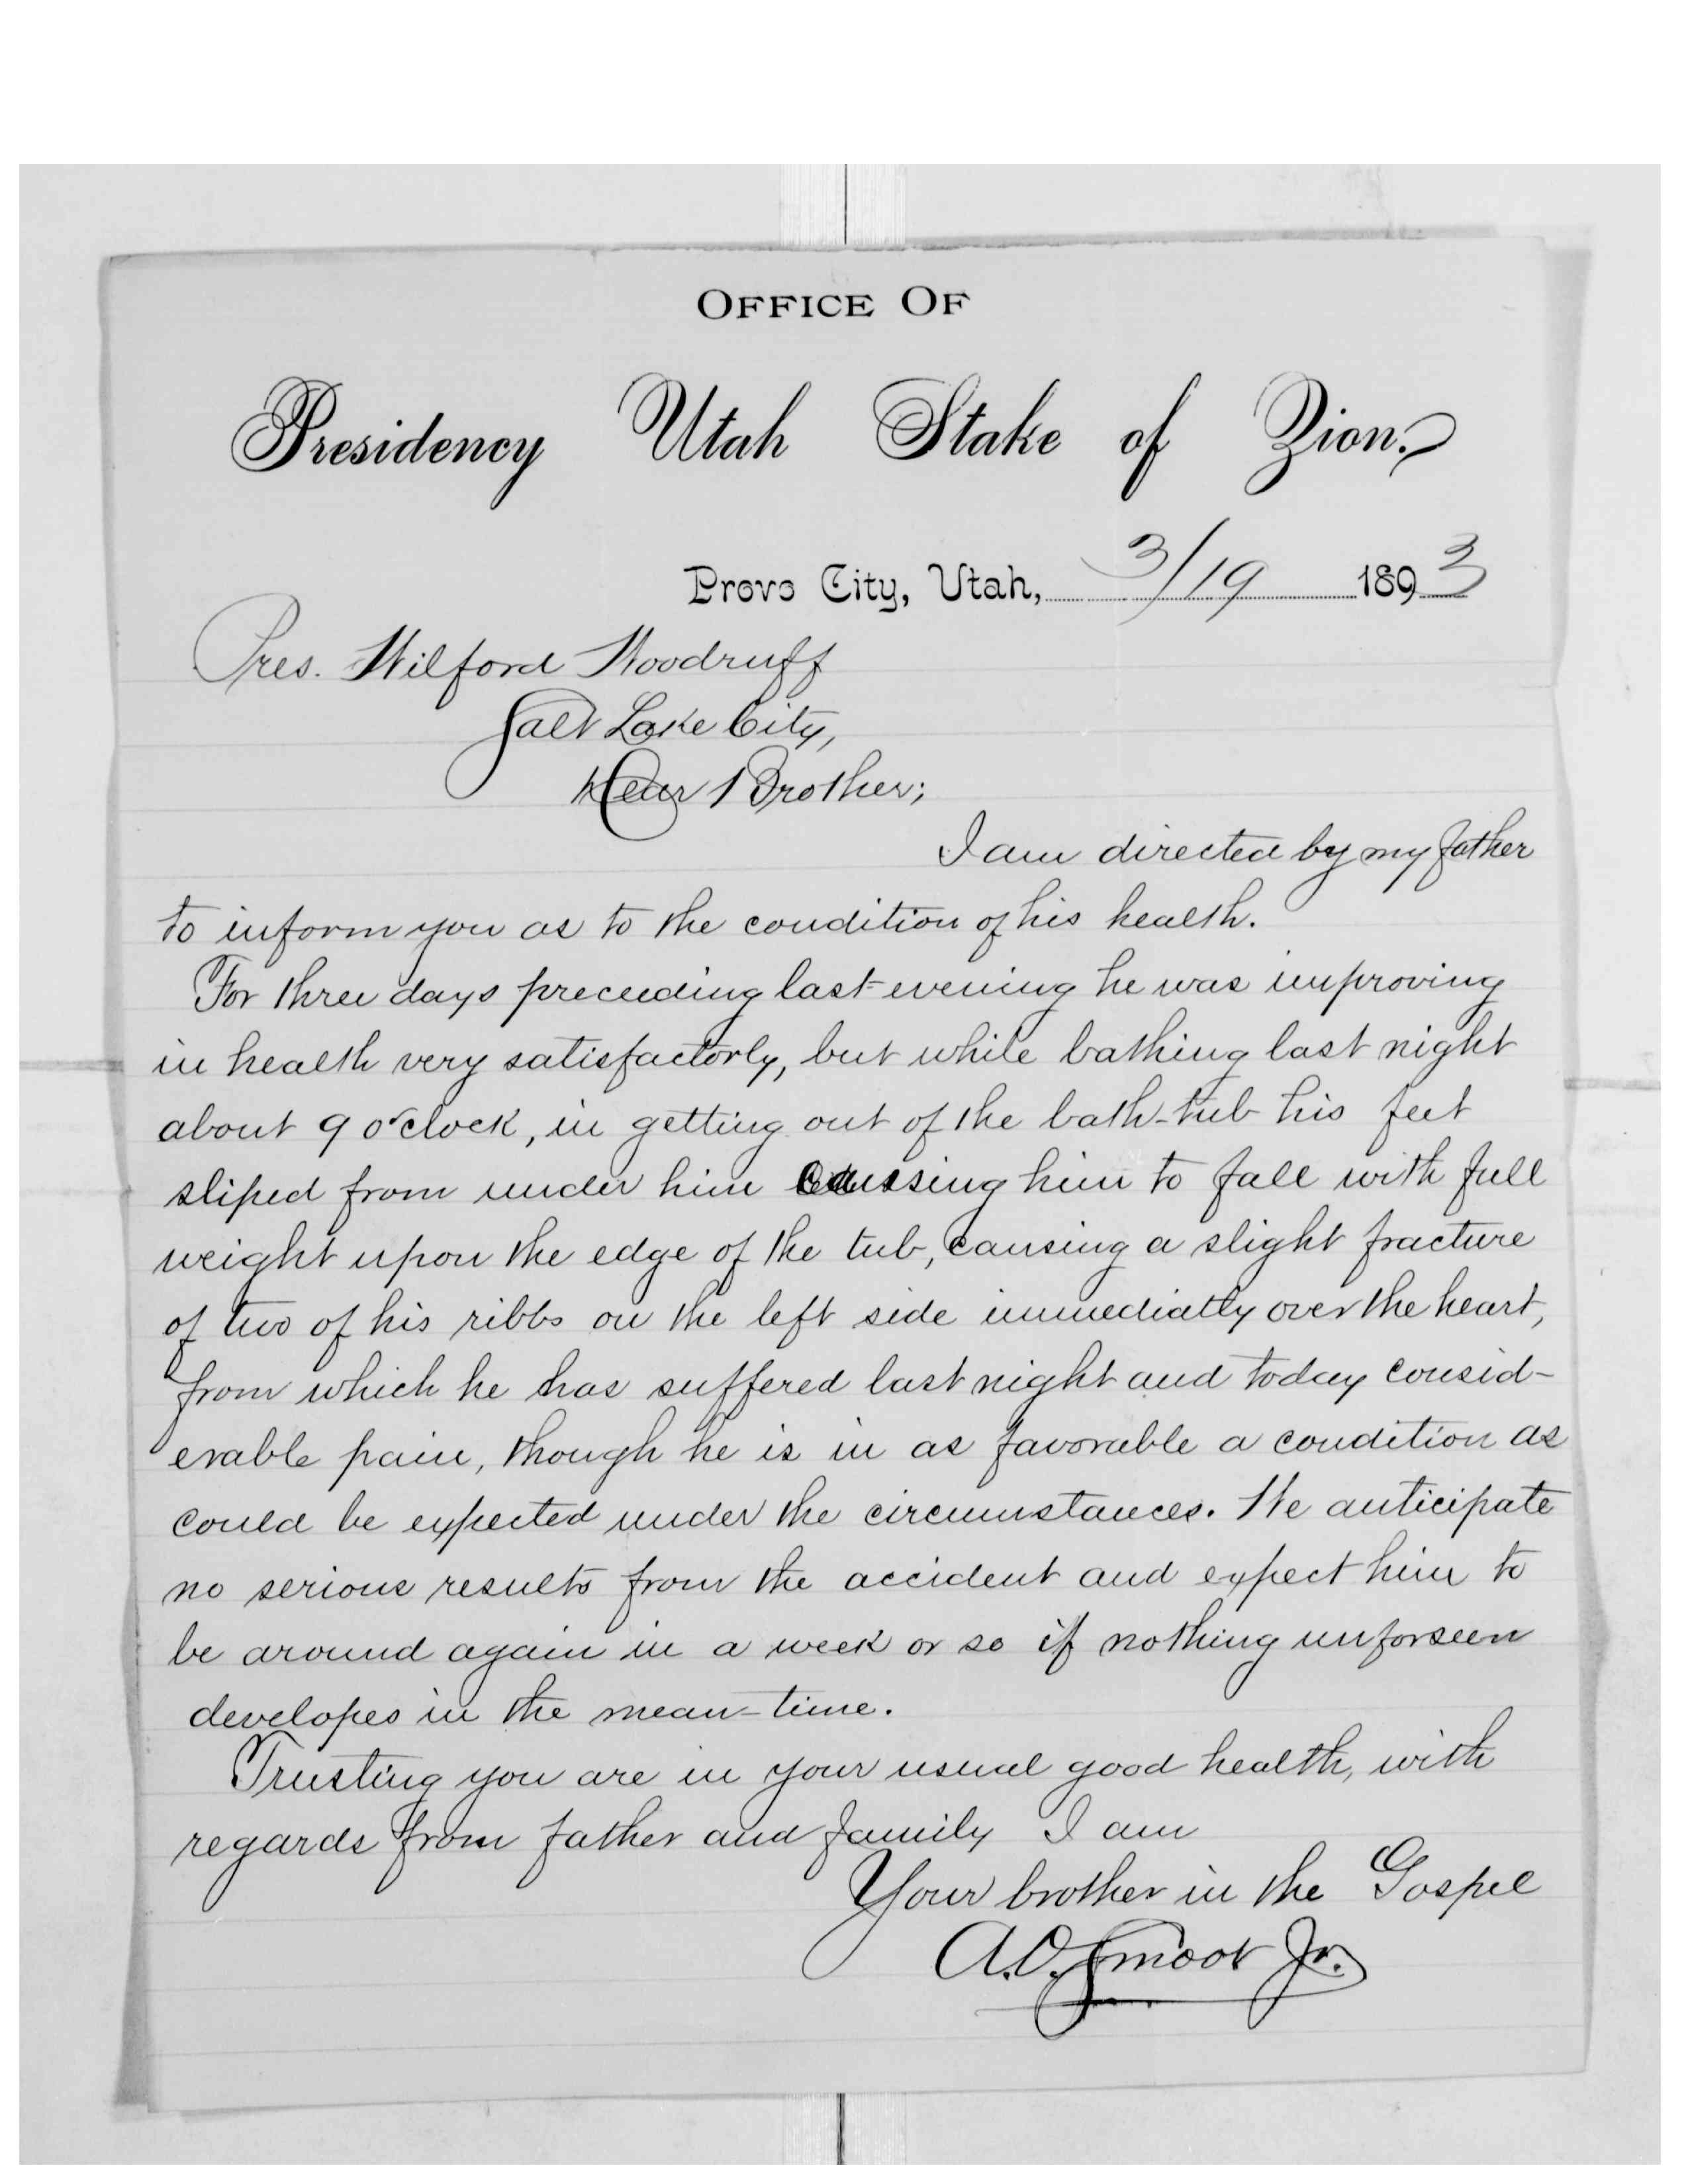 OFFICE OF
Presidency Utah Stake of Zion.
Provo City, Utah, 3/19 1893
Pres. Wilford Woodruff
Salt Lake City,
Dear Brother;
I am directed by my father
to inform you as to the condition of his health.
For three days preceeding last evening he was improving
in health very satisfactorly, but while bathing last night
about 9 o'clock, in getting out of the bath-tub his feet
sliped from under him caussing him to fall with full
weight upon the edge of the tub, causing a slight fracture
of two of his ribbs on the left side immediatly over the heart,
from which he has suffered last night and today consid-
erable pain, though he is in as favorable a condition as
could be expected under the circumstances. We anticipate
no serious results from the accident and expect him to
be around again in a week or so if nothing unforseen
developes in the mean-time.
Trusting you are in your usual good health, with
regards from father and family I am
Your brother in the Gospel
A.O. Smoot Jr.